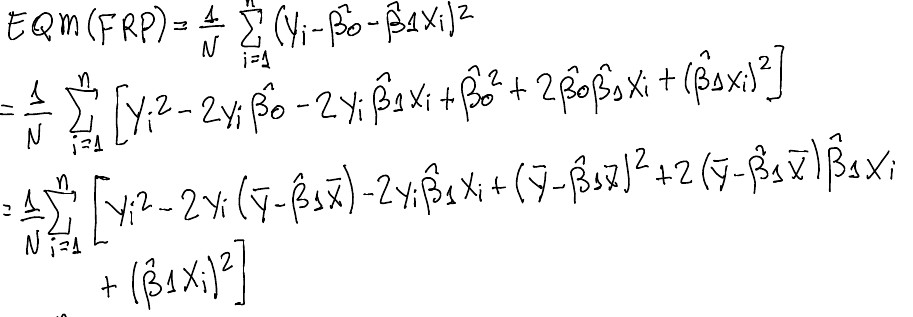 EQM(FRP) = 1/N Σ_{i=1}^{n} (yᵢ - β̂₀ - β̂₁xᵢ)²
= 1/N Σ_{i=1}^{n} [yᵢ² - 2yᵢβ̂₀ - 2yᵢβ̂₁xᵢ + β̂₀² + 2β̂₀β̂₁xᵢ + (β̂₁xᵢ)²]
= 1/N Σ_{i=1}^{n} [yᵢ² - 2yᵢ(ȳ - β̂₁x̄) - 2yᵢβ̂₁xᵢ + (ȳ - β̂₁x̄)² + 2(ȳ - β̂₁x̄)β̂₁xᵢ
+ (β̂₁xᵢ)²]